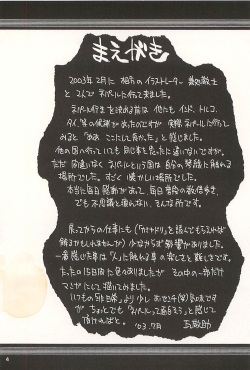 まえがき
2003年2月に 相方のイラストレーター
と2人でネパールに行って来ました。
ネパール行きを決める前は 他にも インド、トルコ、
タイ、等の候補があったのですが 実際ネパールに行って
みると「ああ ここにして良かった」と感じました。
他の国へ行っても同じ事を思ったに違いないですが、
ただ 間違いなく ネパールという国は 自分の琴線に触れる
場所でした。すごく 懐かしい場所でした。
本当に毎日感動があって、毎日
でも不思議と疲れない、そんな所です。
戻ってからの仕事にも(「カミヤドリ」を読んでもらえれば
解るかもしれませんが)少なからず影響がありました。
一番感じた事は「人」に触れる事の楽しさと難しさです。
たった15日間に色々ありましたが その中の一部だけ
マンガにして描いてみました。
いつもの「非日常」より少し
が ちょっとでも「ネパールって面白そう」と感じて
頂ければと。 '03.7月 三部敬
4